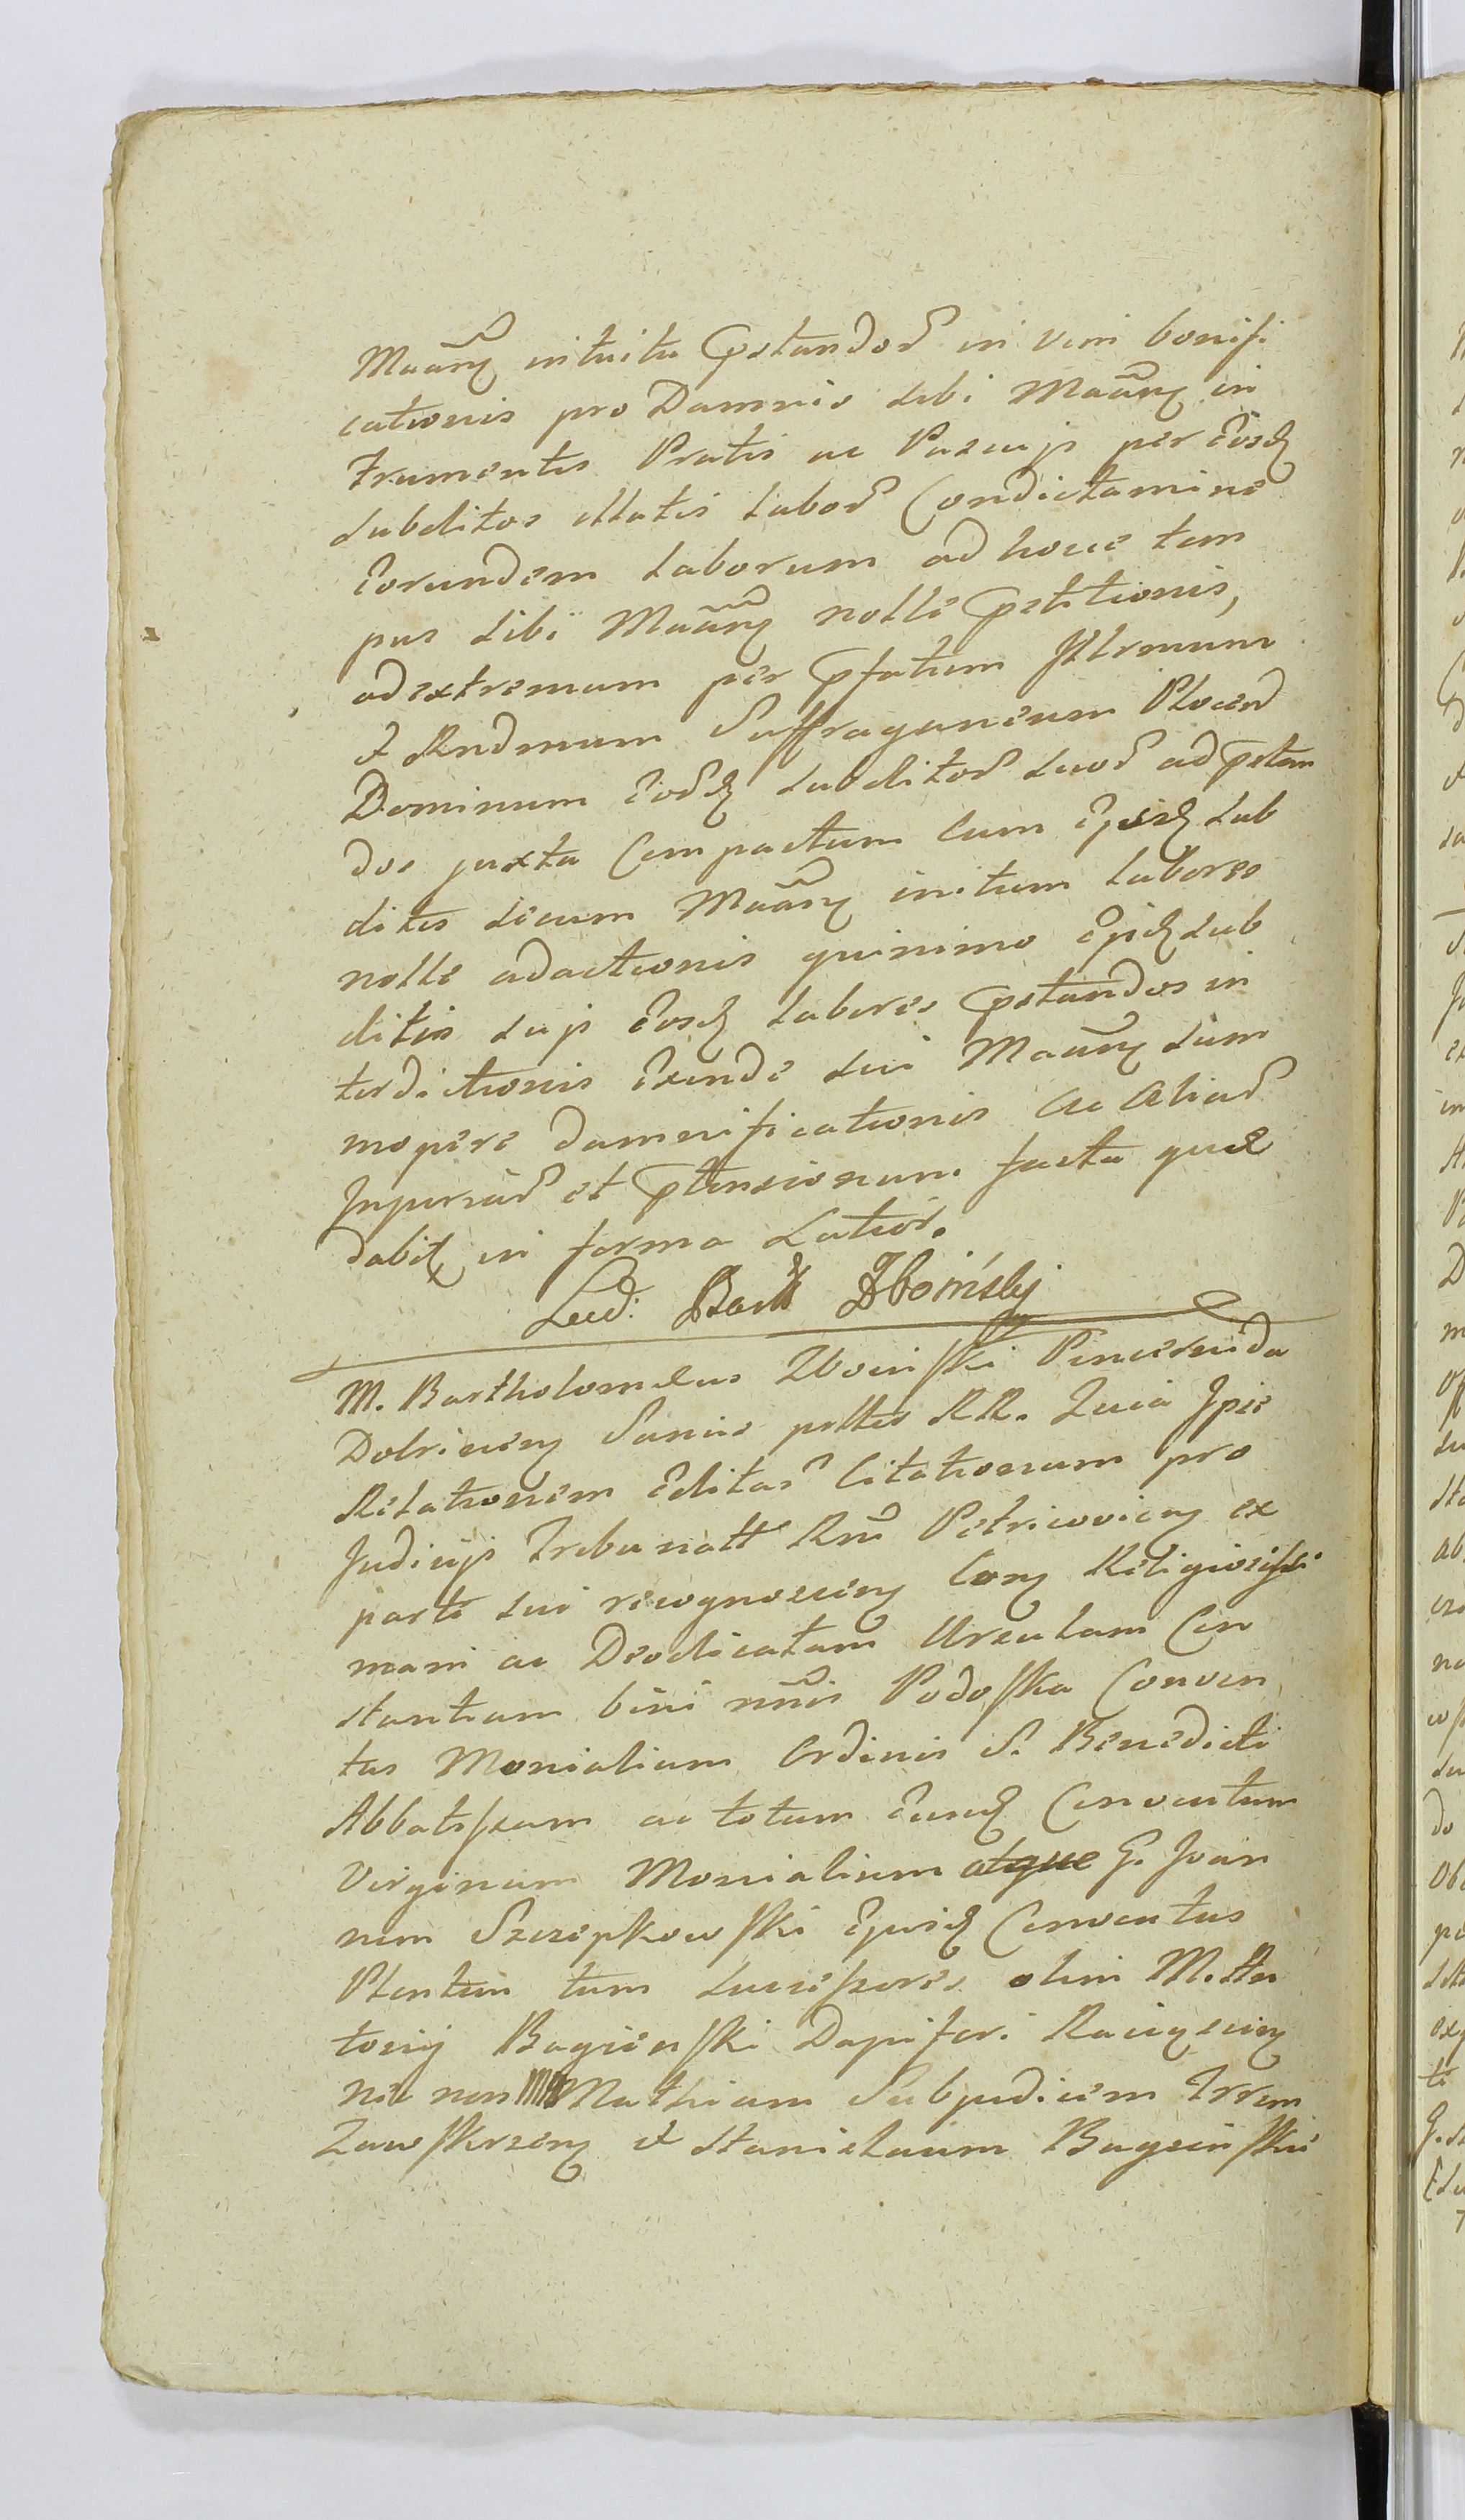 Maãnq intuitu Pstandor in vim bonifi
cationis pro Damnis sibi Maãnq in
frumentis Pratis ac Pascujs per Eosdq
subditos illatis labor Condictamine
Eorundem laborum ad hocce tem
pus sibi Maãnq nolle Pstitionis,
ad extremum per Pfatum Illrmum
et Rndmum Suffraganeum Plocen
Dominum Eordq subditor suor ad pstan
dos juxta Compactum cum Ejsdq sub
ditis secum Maãnq initum labores
nolle adactionis quinimo Ejsdq sub
ditis sujs Eosdq labores Pstandos in
terdictionis Exinde sui Maãnq sum
mopere damnificationis ac Aliar
Injuriar et Ptensionum facta quæ
dabitq in forma latior.
Lud: Bart Zboinskj
M. Bartholomæus Zboinski Pincernida
Dobrinenq Sanus pntes RR. Quia Ipse
Relationem Editar Citationum pro
Judicijs Tribunalt Rni Petricovienq ex
parte sui recognoscenq Conq Religiosissi
mam ac Deodicatam Ursulam Con
stantiam bini nnis Podoska Conven
tus Monialium Ordinis S. Benedicti
Abbatissam ac totum Eundq Conventum
Virginum Monialium atque G. Joan
nem Szczepkowski Ejusdq Conventus
Plentem tum successores olim M. An
tonij Bagienski Dapiferi Raciązenq
nec non Mathiam Subjudicem Trrem
Zawskrzenq et Stanislaum Bagienskie